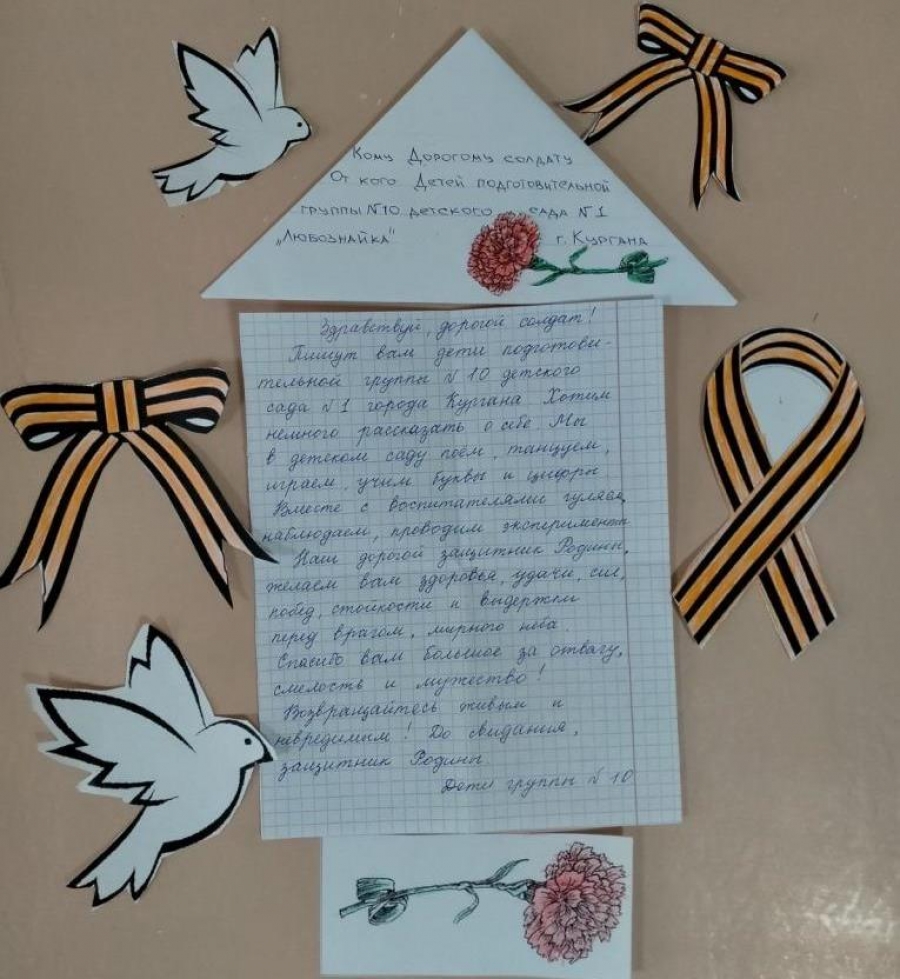 Кому Дорогому солдату
От кого Детей подготовительной
группы №10 детского сада №1
„Любознайка" г. Кургана
Здравствуй, дорогой солдат!
Пишут вам дети подготови-
тельной группы №10 детского
сада №1 города Кургана Хотим
немного рассказать о себе Мы
в детском саду поём, танцуем,
играем, учим буквы и цифры.
Вместе с воспитателями гуляем,
наблюдаем, проводим эксперименты
Наш дорогой защитник Родины,
желаем вам здоровья, удачи, сил,
побед, стойкости и выдержки
перед врагом, мирного неба.
Спасибо вам большое за отвагу,
смелость и мужество!
Возвращайтесь живым и
невредимым! До свидания,
защитник Родины
Дети группы №10